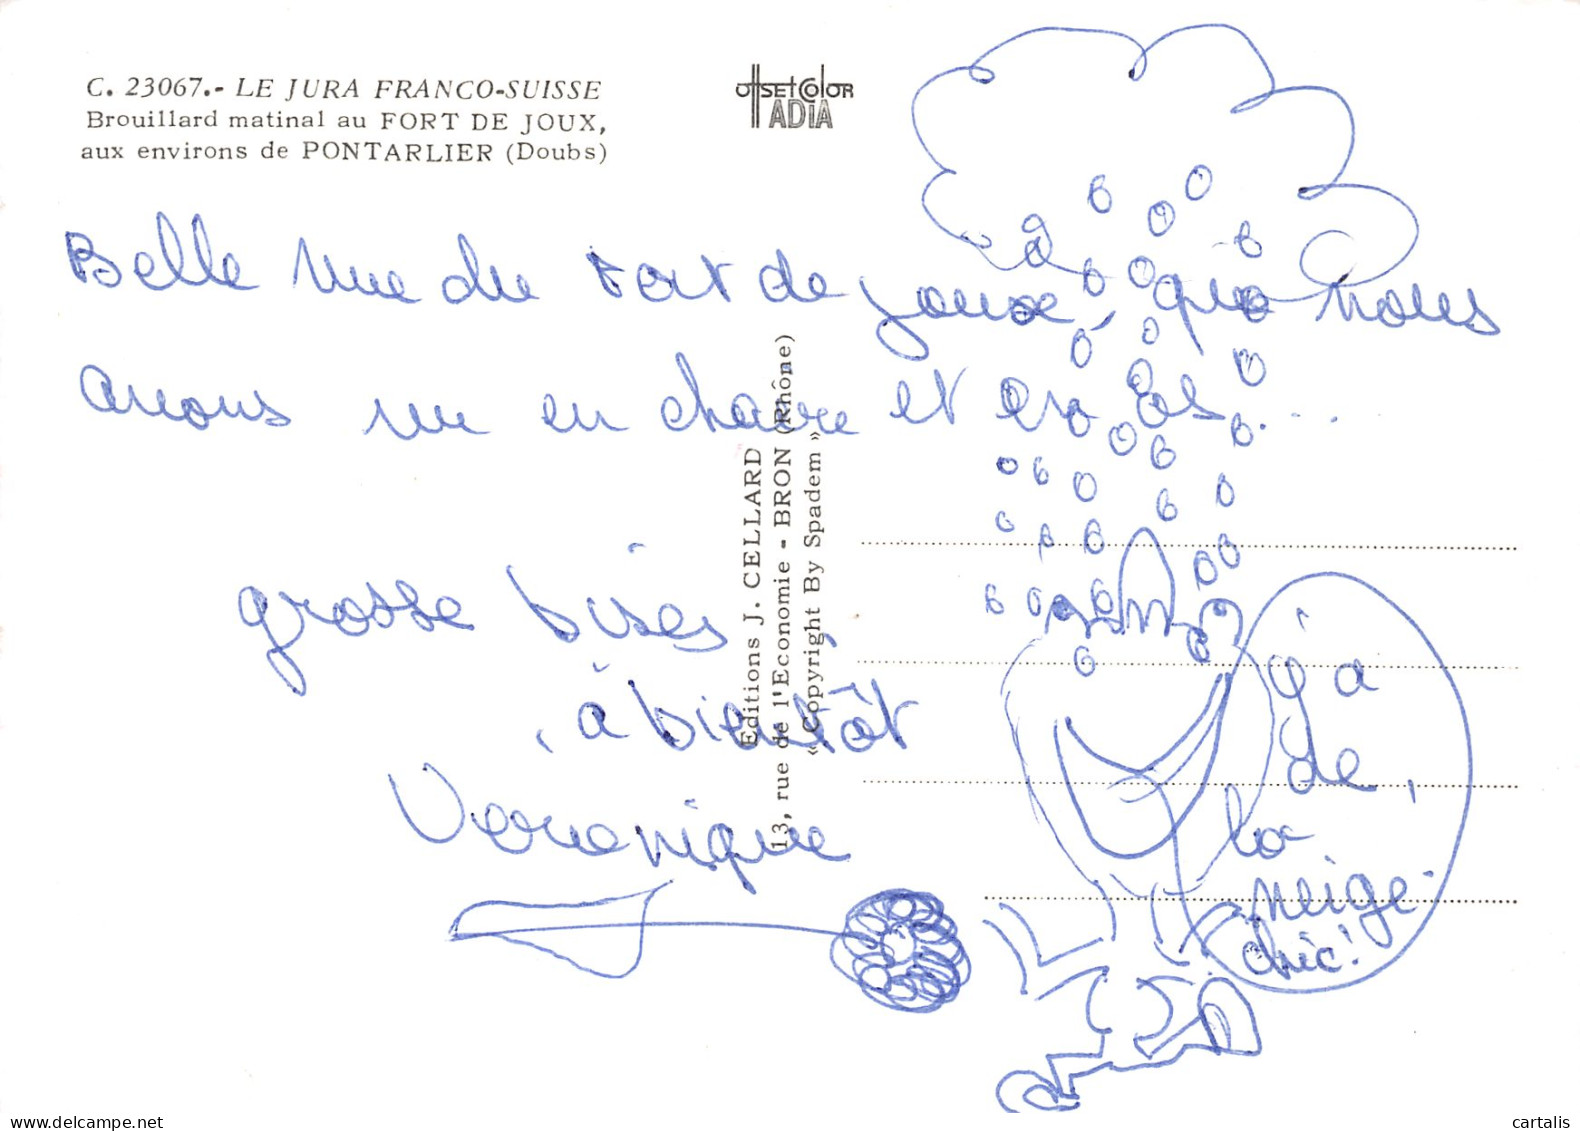 C. 23067.- LE JURA FRANCO-SUISSE
Brouillard matinal au FORT DE JOUX,
aux environs de PONTARLIER (Doubs)
OffSET COlOR
ADIA
Belle vue du Fort de joux, que nous
avons vu en chaire et en os....
grosse bises,
à bientôt
Veronique
Editions J. CELLARD
13, rue de l'Economie - BRON (Rhône)
« Copyright By Spadem »
y'a
de,
la
neige.
chic!
cartalis
delcampe.net